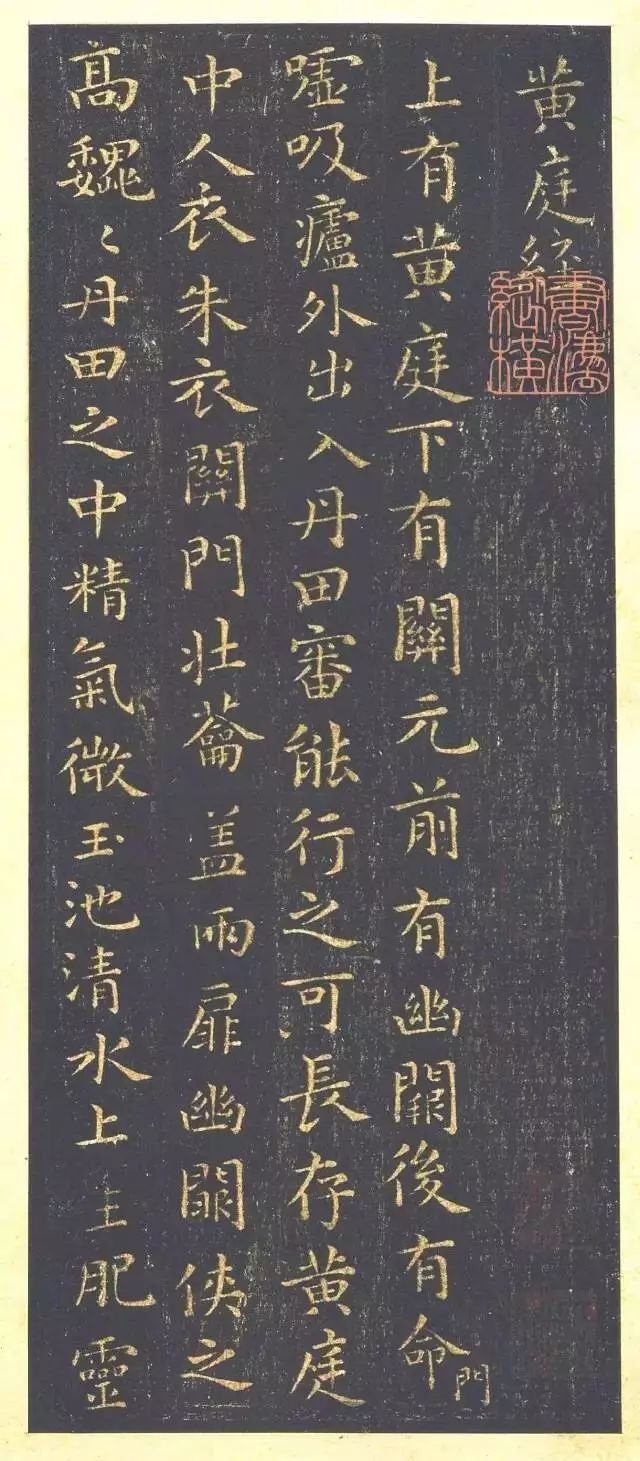 黄庭經
上有黄庭下有關元前有幽闕後有命門
嘘吸廬外出入丹田審能行之可長存黄庭
中人衣朱衣關門壮蘥盖兩扉幽闕侠之
高巍〻丹田之中精氣微玉池清水上生肥靈